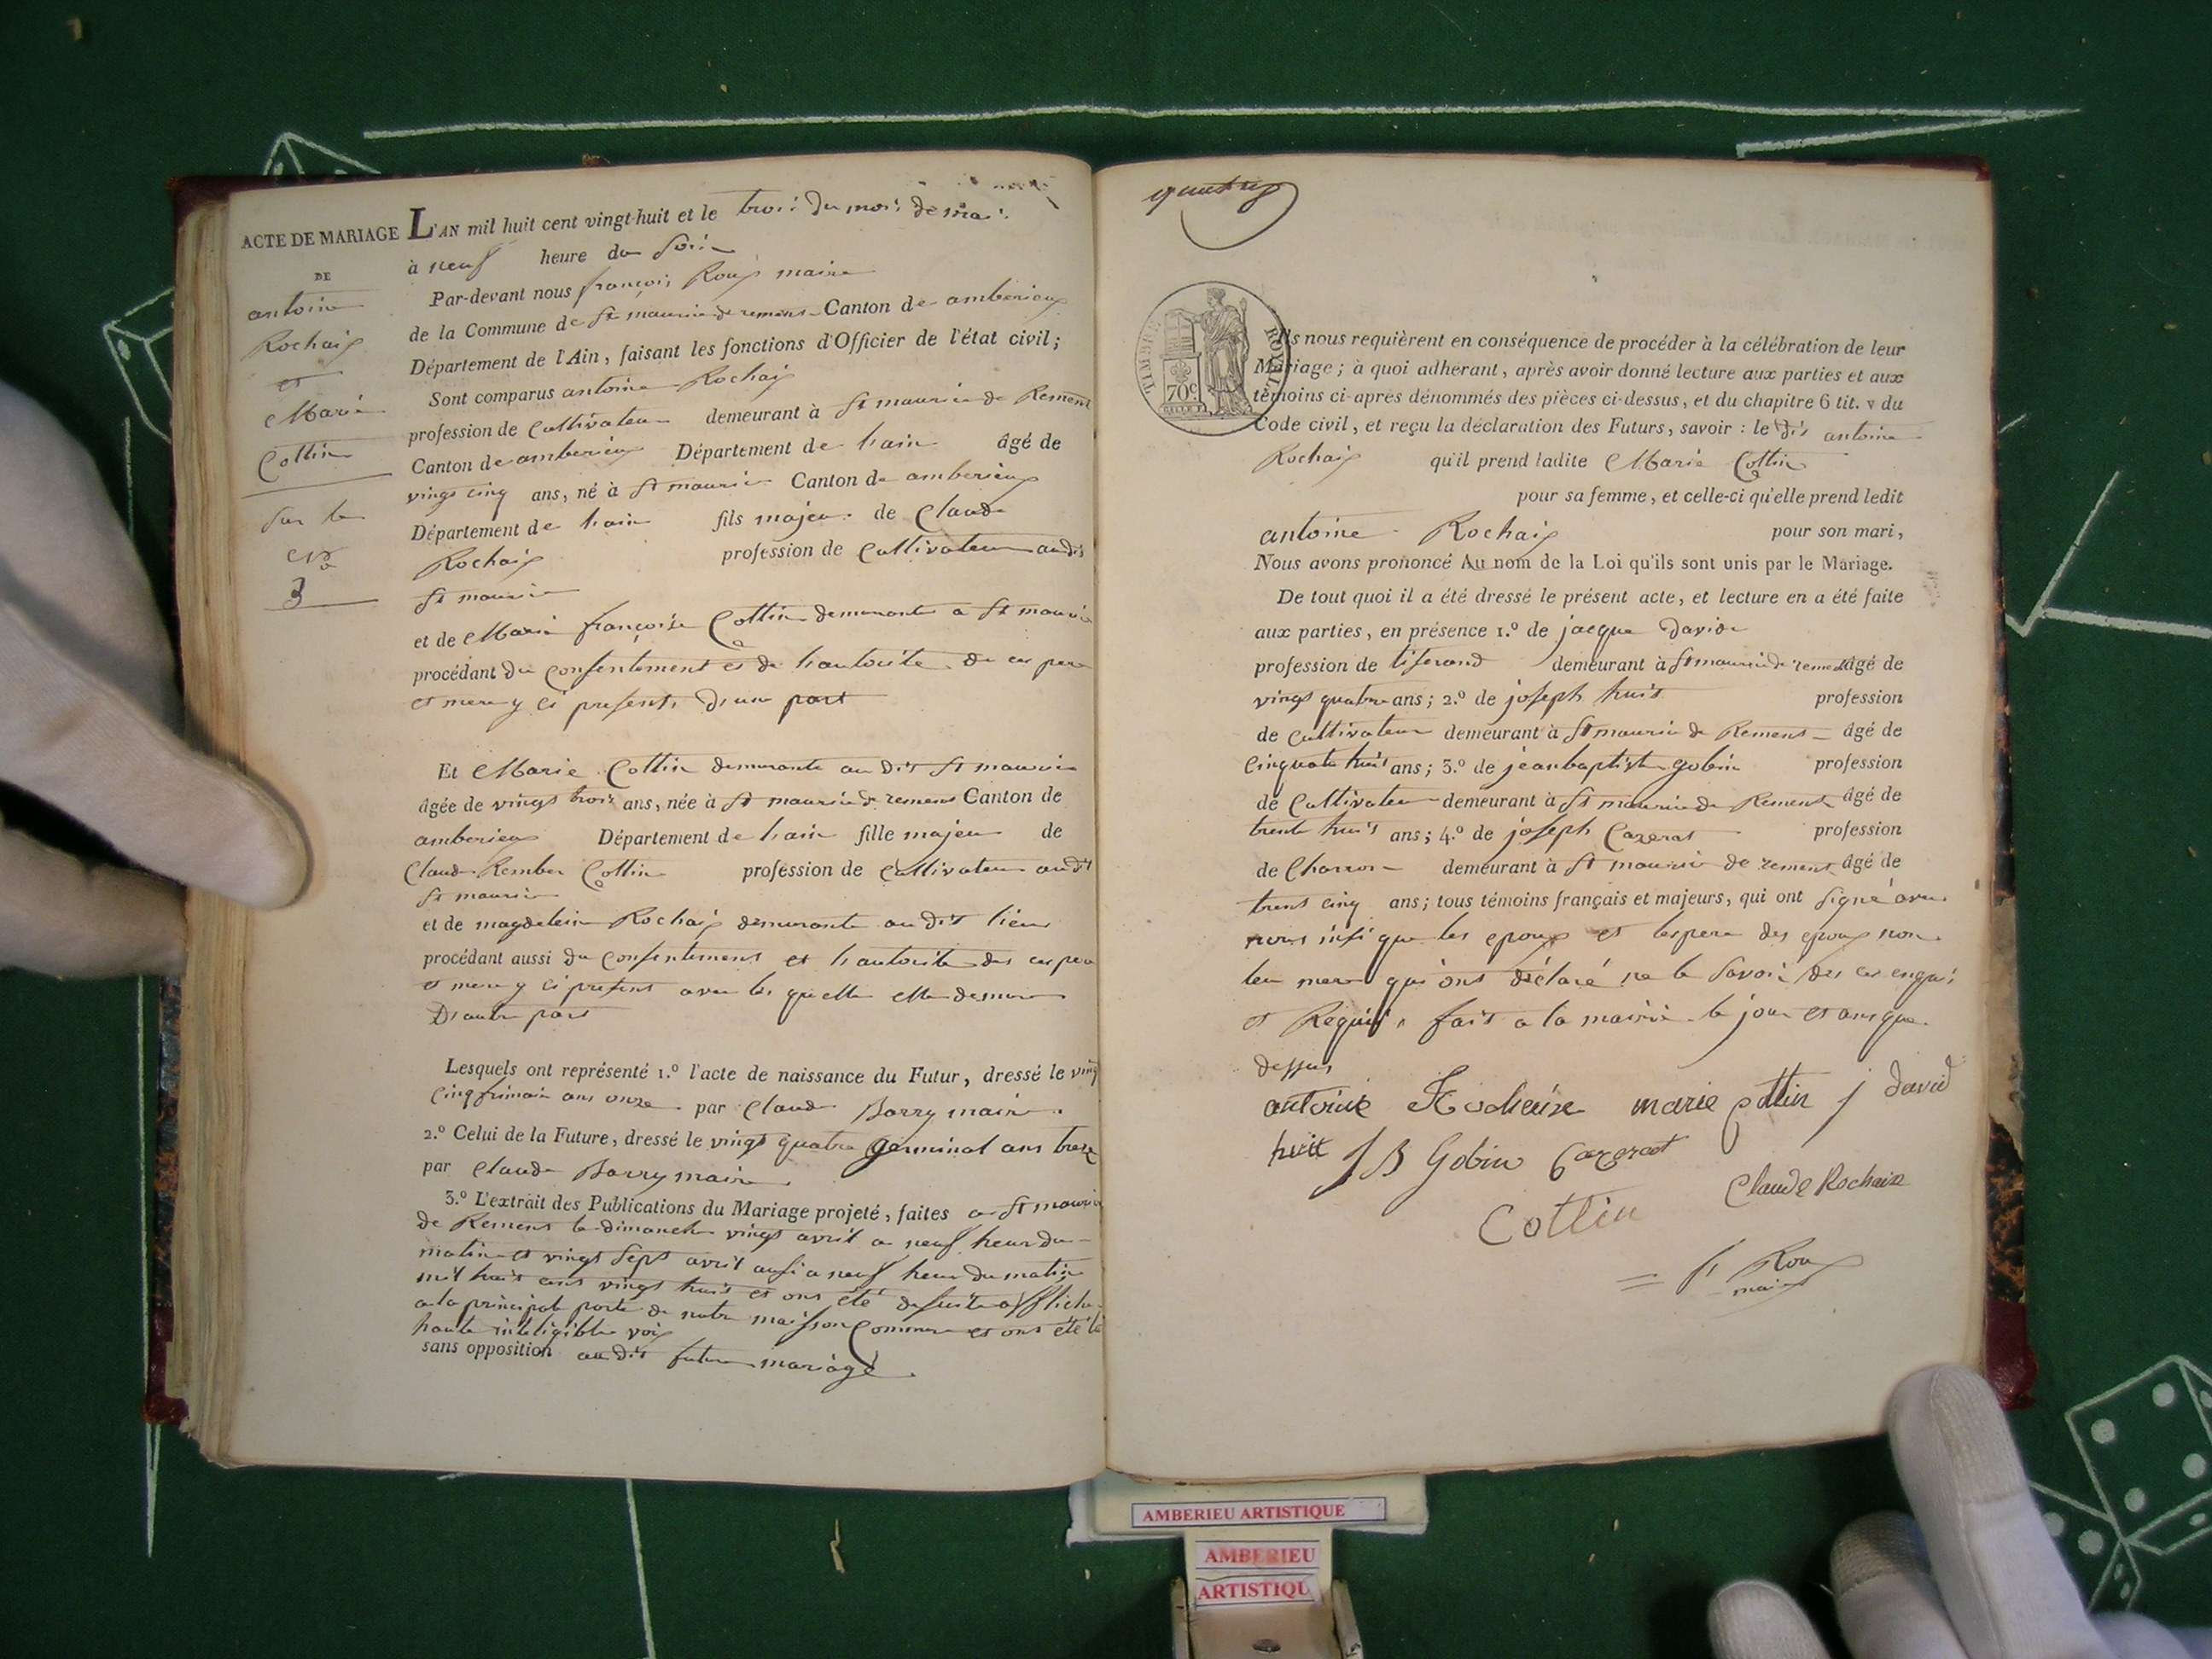 ACTE DE MARIAGE
DE
antoine
Rochaix
et
Marie
Cottin
sur le
No
3
L'AN mil huit cent vingt-huit et le trois du mois de mai
à neuf heure du soir
Par-devant nous françois Roux maire
de la Commune de St maurice de remens Canton de amberieux
Département de l'Ain, faisant les fonctions d'Officier de l'état civil;
Sont comparus antoine Rochaix
profession de Cultivateur demeurant à St maurice de Remens
Canton de amberieux Département de lain âgé de
vingt cinq ans, né à St maurice Canton de amberieux
Département de lain fils majeur de Claude
Rochaix profession de Cultivateur audit
St maurice
et de Marie françoise Cottin demeurante a St maurice
procédant du Consentement et de lautorité de ces pere
et mere y ci presents d'une part
Et Marie Cottin demeurante au dit St maurice
âgée de vingt trois ans, née à St maurice de remens Canton de
amberieux Département de lain fille majeur de
Claude Rember Cottin profession de Cultivateur audit
St maurice
et de magdelein Rochaix demeurante au dit lieu
procédant aussi du Consentement et lautorité des ces pere
et mere y ci present avec les quelle elle demeure
D'autre part
Lesquels ont représenté 1.º l'acte de naissance du Futur, dressé le vingt
Cinq frimair ans onze par Claude Barry maire
2.º Celui de la Future, dressé le vingt quatre germinal ans treze
par Claude Barry maire
3.º L'extrait des Publications du Mariage projeté, faites a St maurice
de Remens le dimanche vingt avril a neuf heur du
matin et vingt sept avril ausi a neuf heur du matin
mil huit cent vingt huit et ont été desuite affiche
a la principale porte de notre maison Commune et ont été lu
haute inteligible voix
sans opposition au dit futur mariage
TIMBRE ROYAL
70c
Ils nous requièrent en conséquence de procéder à la célébration de leur
Mariage; à quoi adhérant, après avoir donné lecture aux parties et aux
témoins ci-après dénommés des pièces ci-dessus, et du chapitre 6 tit. v du
Code civil, et reçu la déclaration des Futurs, savoir: le dit antoine
Rochaix qu'il prend ladite Marie Cottin
pour sa femme, et celle-ci qu'elle prend ledit
antoine Rochaix pour son mari,
Nous avons prononcé Au nom de la Loi qu'ils sont unis par le Mariage.
De tout quoi il a été dressé le présent acte, et lecture en a été faite
aux parties, en présence 1.º de jacque David
profession de tiserand demeurant à St maurice de remens âgé de
vingt quatre ans; 2.º de joseph huit profession
de Cultivateur demeurant à St maurice de Remens âgé de
Cinquate huit ans; 3.º de jeanbaptiste gobin profession
de Cultivateur demeurant à St maurice de Remens âgé de
trente huit ans; 4.º de joseph Cazerat profession
de Charron demeurant à St maurice de remens âgé de
trent cinq ans; tous témoins français et majeurs, qui ont signé avec
nous insi que les epoux et les pere des epoux non
leu mere qui ont déclaré ne le Savoir
et Requis fait a la mairie le jour et ans que
dessus
antoine Rocheix marie cottin j david
huit J B Gobin Cazerat
Cottin Claude Rochaix
f Roux
maire
AMBERIEU ARTISTIQUE
AMBERIEU
ARTISTIQU